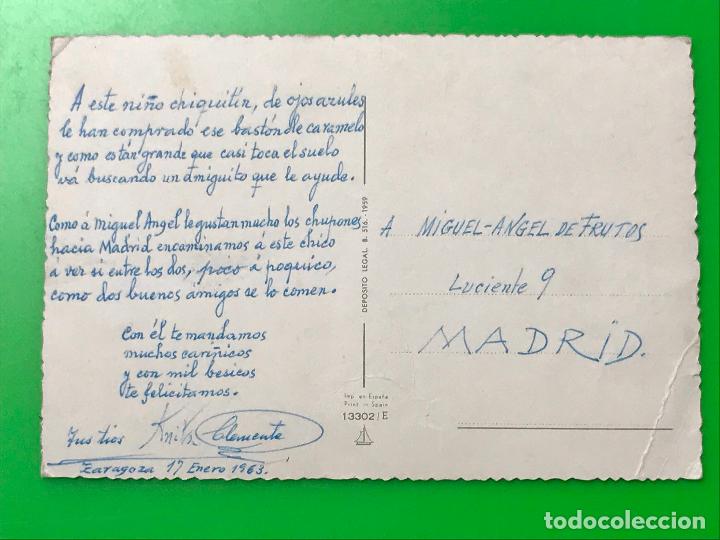 A este niño chiquitín, de ojos azules
le han comprado ese bastón de caramelo
y como es tán grande que casi toca el suelo
vá buscando un ámiguito que le ayude.
Como á Miguel Angel le gustan mucho los chupones
hacia Madrid encaminamos á este chico
á ver si entre los dos, poco á poquico,
como dos buenos ámigos se lo comen.
Con él te mandamos
muchos cariñicos
y con mil besicos
te felicitamos.
Tus tios Clemente
Zaragoza 17 Enero 1963.
DEPOSITO LEGAL B. 516.-1959
A MIGUEL-ANGEL DE FRUTOS
Luciente 9
MADRID.
Imp. en España
Print. in Spain
13302/E
todocoleccion.net